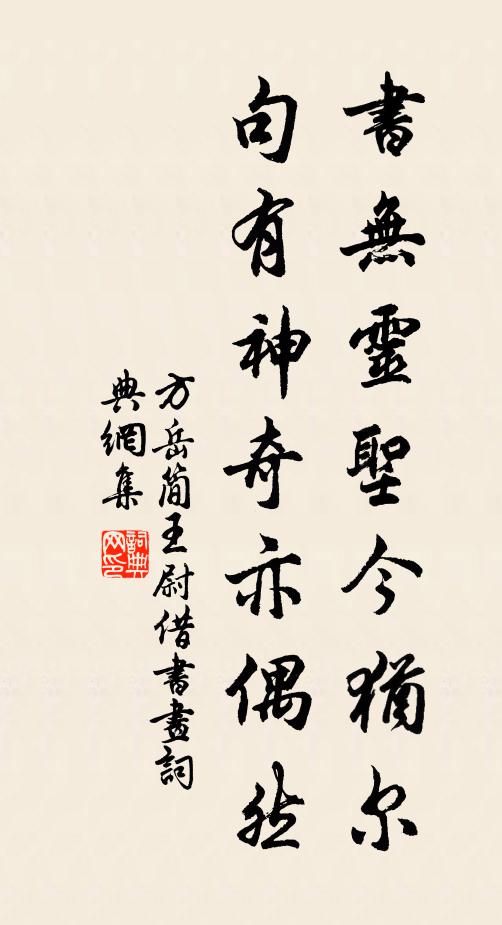 書無靈聖今猶尔
句有神奇亦偶然
方岳簡王尉借書畫詞
典網集
詞典网印